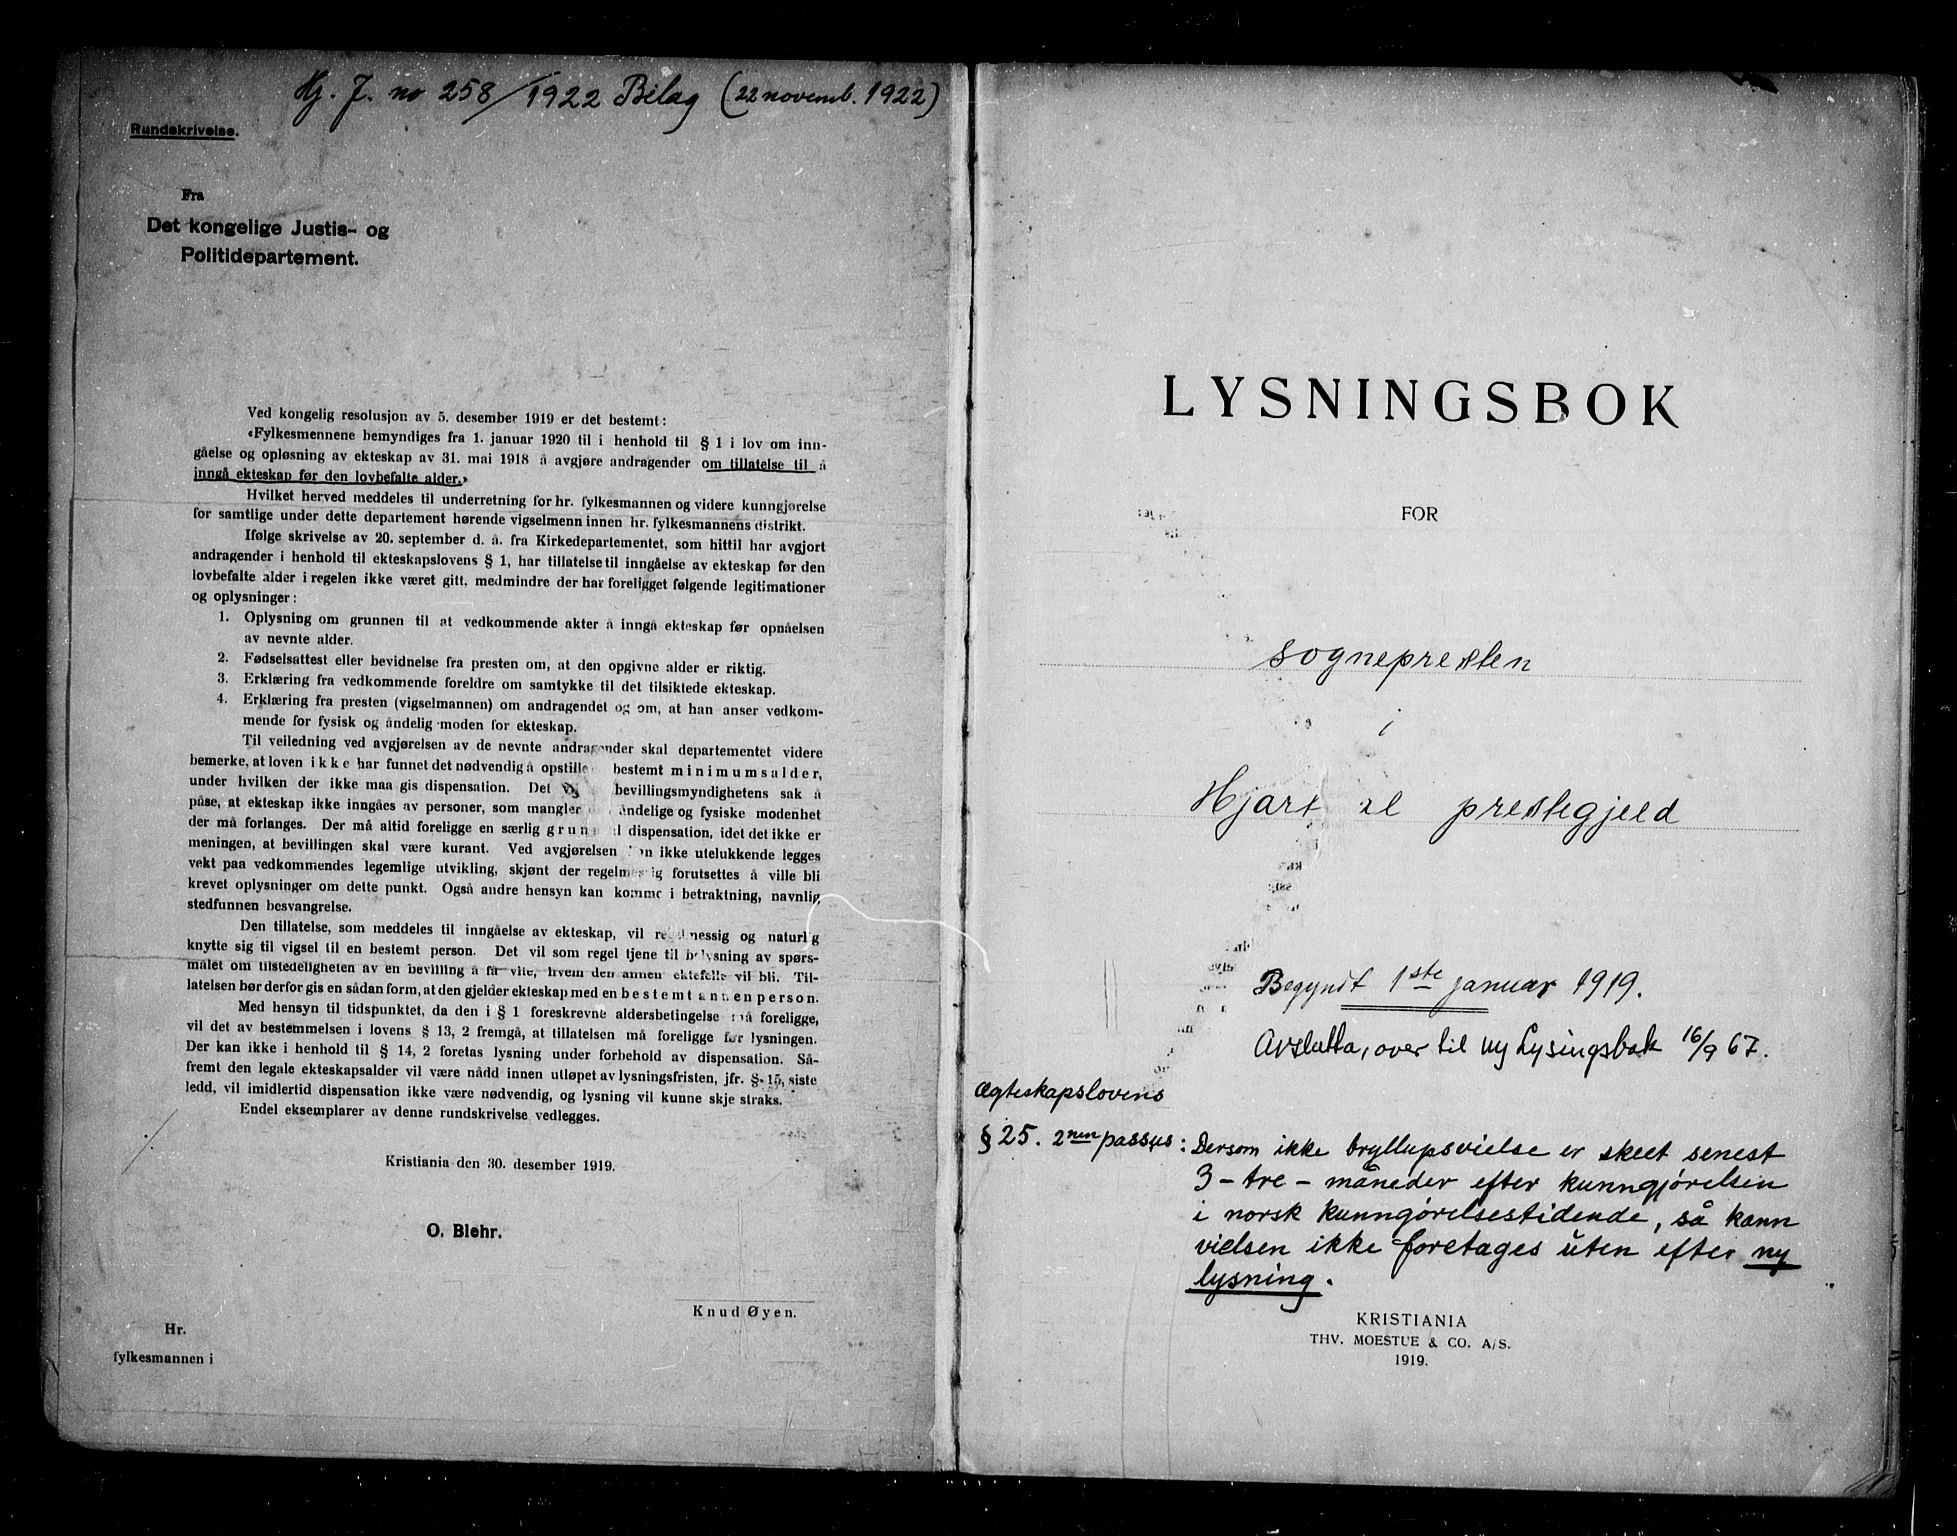 Hj. J. no 258/1922 Bilag (22 novemb. 1922)
Rundskrivelse.
Fra
Det kongelige Justis- og
Politidepartement.
Ved kongelig resolusjon av 5. desember 1919 er det bestemt:
«Fylkesmennene bemyndiges fra 1. januar 1920 til i henhold til § 1 i lov om inn-
gåelse og opløsning av ekteskap av 31. mai 1918 å avgjøre andragender om tillatelse til å
inngå ekteskap før den lovbefalte alder.»
Hvilket herved meddeles til underretning for hr. fylkesmannen og videre kunngjørelse
for samtlige under dette departement hørende vigselmenn innen hr. fylkesmannens distrikt.
Ifølge skrivelse av 20. september d. å. fra Kirkedepartementet, som hittil har avgjort
andragender i henhold til ekteskapslovens § 1, har tillatelse til inngåelse av ekteskap før den
lovbefalte alder i regelen ikke været gitt, medmindre der har foreligget følgende legitimationer
og oplysninger:
1. Oplysning om grunnen til at vedkommende akter å inngå ekteskap før opnåelsen
av nevnte alder.
2. Fødselsattest eller bevidnelse fra presten om, at den opgivne alder er riktig.
3. Erklæring fra vedkommende foreldre om samtykke til det tilsiktede ekteskap.
4. Erklæring fra presten (vigselmannen) om andragendet og om, at han anser vedkom-
mende for fysisk og åndelig moden for ekteskap.
Til veiledning ved avgjørelsen av de nevnte andragender skal departementet videre
bemerke, at loven ikke har funnet det nødvendig å opstille bestemt minimumsalder,
under hvilken der ikke maa gis dispensation. Det bevillingsmyndighetens sak å
påse, at ekteskap ikke inngåes av personer, som mangler åndelige og fysiske modenhet
der må forlanges. Der må altid foreligge en særlig grunn til dispensation, idet det ikke er
meningen, at bevillingen skal være kurant. Ved avgjørelsen kan ikke utelukkende legges
vekt paa vedkommendes legemlige utvikling, skjønt der regelmessig forutsettes å ville bli
krevet oplysninger om dette punkt. Også andre hensyn kan komme i betraktning, navnlig
stedfunnen besvangrelse.
Den tillatelse, som meddeles til inngåelse av ekteskap, vil regelmessig og naturlig
knytte sig til vigsel til en bestemt person. Det vil som regel tjene til belysning av spørs-
målet om tilstedeligheten av en bevilling å få vite, hvem den annen ektefelle vil bli. Til-
latelsen bør derfor gis en sådan form, at den gjelder ekteskap med en bestemt annen person.
Med hensyn til tidspunktet, da den i § 1 foreskrevne aldersbetingelse må foreligge,
vil det av bestemmelsen i lovens § 13, 2 fremgå, at tillatelsen må foreligge før lysningen.
Der kan ikke i henhold til § 14, 2 foretas lysning under forbehold av dispensation. Så-
fremt den legale ekteskapsalder vil være nådd innen utløpet av lysningsfristen, jfr. § 15, siste
ledd, vil imidlertid dispensation ikke være nødvendig, og lysning vil kunne skje straks.
Endel eksemplarer av denne rundskrivelse vedlegges.
Kristiania den 30. desember 1919.
O. Blehr.
Knud Øyen.
Hr.
fylkesmannen i
LYSNINGSBOK
FOR
sognepresten
i
Hjart al prestegjeld
Begyndt 1ste januar 1919.
Avslutta, over til ny Lysingsbok 16/9 67.
Ægteskapslovens
§ 25. 2nen passus: Dersom ikke bryllupsvielse er skeet senest
3 - tre - måneder efter kunngjørelsen
i norsk kunngjørelsestidende, så kann
vielsen ikke foretages uten efter ny
lysning.
KRISTIANIA
THV. MOESTUE & CO. A/S.
1919.